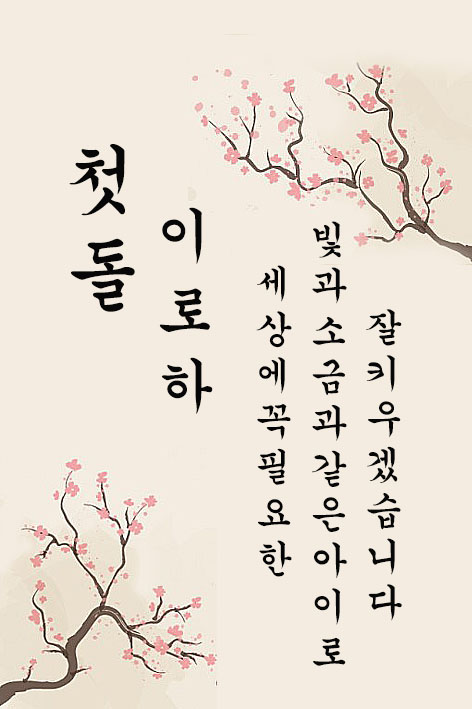 첫돌
이로하
세상에꼭필요한
빛과소금과같은아이로
잘키우겠습니다